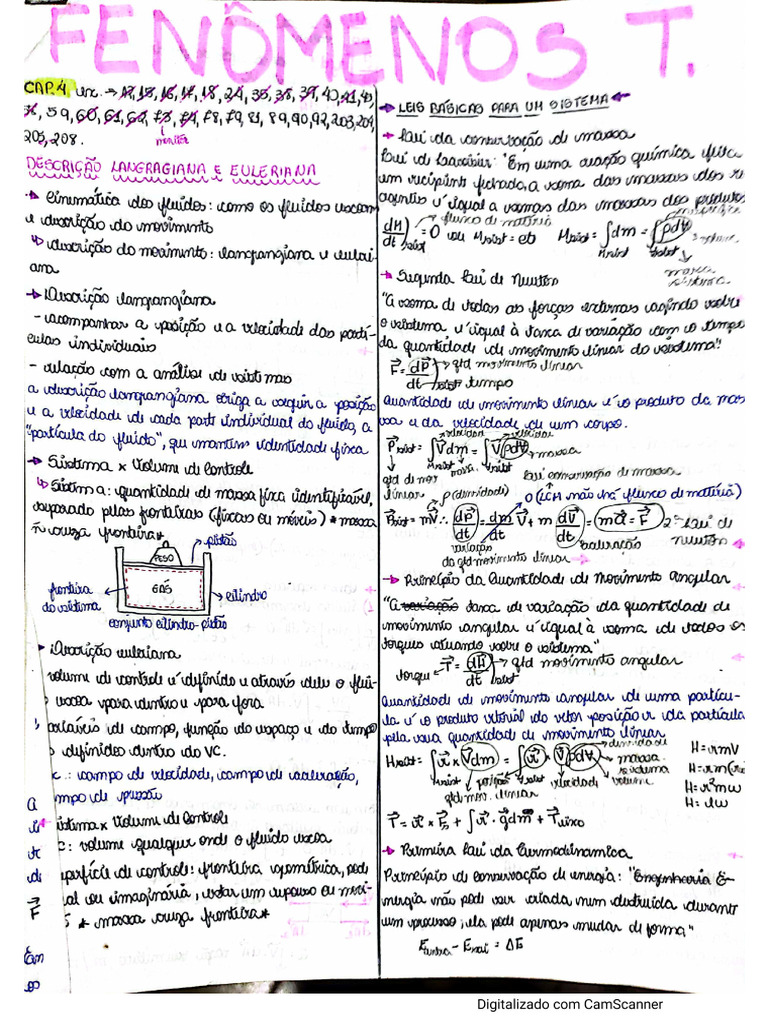 FENÔMENOS T.
CAP. 4 Exc. → 12, 15, 16, 17, 18, 24, 35, 38, 39, 40, 41, 43,
59, 60, 61, 62, 73, 74, 78, 79, 81, 89, 90, 92, 203, 204,
205, 208.
DESCRIÇÃO LANGRAGIANA E EULERIANA
→ Cinemática dos fluidos: como os fluidos escoam
e descrição do movimento
↳ descrição do movimento: langrangiana e euleri
ana
→ Descrição langrangiana
- acompanhar a posição e a velocidade das partí-
culas individuais
- relação com a análise de sistemas
a descrição langrangiana obriga a seguir a posição
e a velocidade de cada parte individual do fluido, a
"partícula do fluido", que mantém identidade fixa
→ Sistema x Volume de Controle
↳ Sistema: quantidade de massa fixa identificável,
separado pelas fronteiras (fixas ou móveis) *massa
ñ cruza fronteira*
pistão
PESO
GÁS
fronteira
do sistema
cilindro
conjunto cilindro-pistão
→ Descrição euleriana
volume de controle é definido e através dele o flui-
escoa para dentro e para fora
variáveis de campo, função do espaço e do tempo
definidos dentro do VC.
c.: campo de velocidade, campo de aceleração,
mpo de pressão
istema x Volume de Controle
C: volume qualquer onde o fluido escoa
uperfície de controle: fronteira geométrica, pode
al ou imaginária, estar em repouso ou movi-
* massa cruza fronteira*
→ LEIS BÁSICAS PARA UM SISTEMA ←
→ Lei da conservação de massa
Lei de Lavoisier: "Em uma reação química feita
em recipiente fechado, a soma das massas dos re
agentes é igual a somas das massas dos produtos
dM/dt)sist = 0 ou Msist = cte Msist = ∫Msist dm = ∫∀sist ρd∀
fluxo de matéria
massa
sistema
→ Segunda Lei de Newton
"A soma de todas as forças externas agindo sobre
o sistema é igual à taxa de variação com o tempo
da quantidade de movimento linear do sistema"
F⃗ = dP⃗/dt)sist qtd movimento linear
tempo
Quantidade de movimento linear é o produto da mas
sa e da velocidade de um corpo.
velocidade velocidade
P⃗sist = ∫Msist V⃗dm = ∫∀sist V⃗ρd∀ → massa
qtd de mov
linear
massa
ρ (densidade)
Lei conservação de massa
0 (LCM não há fluxo de matéria)
P⃗sist = mV⃗ ∴ dP⃗/dt = dm/dt V⃗ + m dV⃗/dt = ma⃗ = F⃗ 2ª Lei de
Newton
variação
da qtd movimento linear
aceleração
→ Princípio da Quantidade de Movimento Angular
"A variação taxa de variação da quantidade de
movimento angular é igual à soma de todos os
torques atuando sobre o sistema"
torque ← T⃗ = dH⃗/dt)sist → qtd movimento angular
Quantidade de movimento angular de uma partícu-
la é o produto vetorial do vetor posição r da partícula
pela sua quantidade de movimento linear
densidade
H⃗sist = ∫Msist r⃗ x V⃗dm = ∫∀sist r⃗ x V⃗ρd∀
massa
sistema
volume
posição
velocidade
qtd mov. linear
H = rmV
H = rm(r
H = r²mω
H = Iω
T⃗ = r⃗ x F⃗s + ∫r⃗ x g⃗dm + T⃗eixo
→ Primeira Lei da Termodinâmica
Princípio de conservação de energia: "Engenheria E-
nergia não pode ser criada, nem destruída durante
um processo; ela pode apenas mudar de forma"
Eentra - Esai = ΔE
Digitalizado com CamScanner